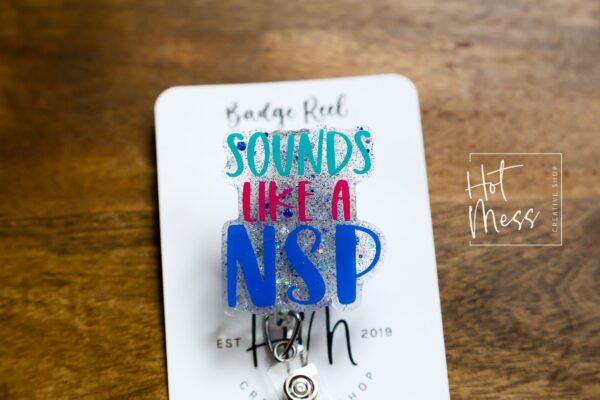 Badge Reel
SOUNDS
LIKE A
NSP
EST 2019
Hot
Mess
CREATIVE SHOP